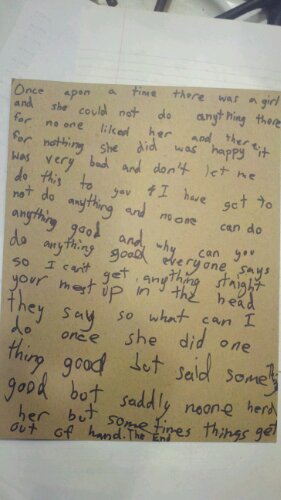 Once apon a time there was a girl
and she could not do anything there
for no one liked her and there it
for nothing she did was happy it
was very bad and don't let me
do this to you & I have got to
not do anything and noone can do
anything good and why can you
do anything good everyone says
so I can't get anything staight
your mest up in the head
they say so what can I
do once she did one
thing good but said some
good but saddly noone herd
her but some times things get
out of hand. The End